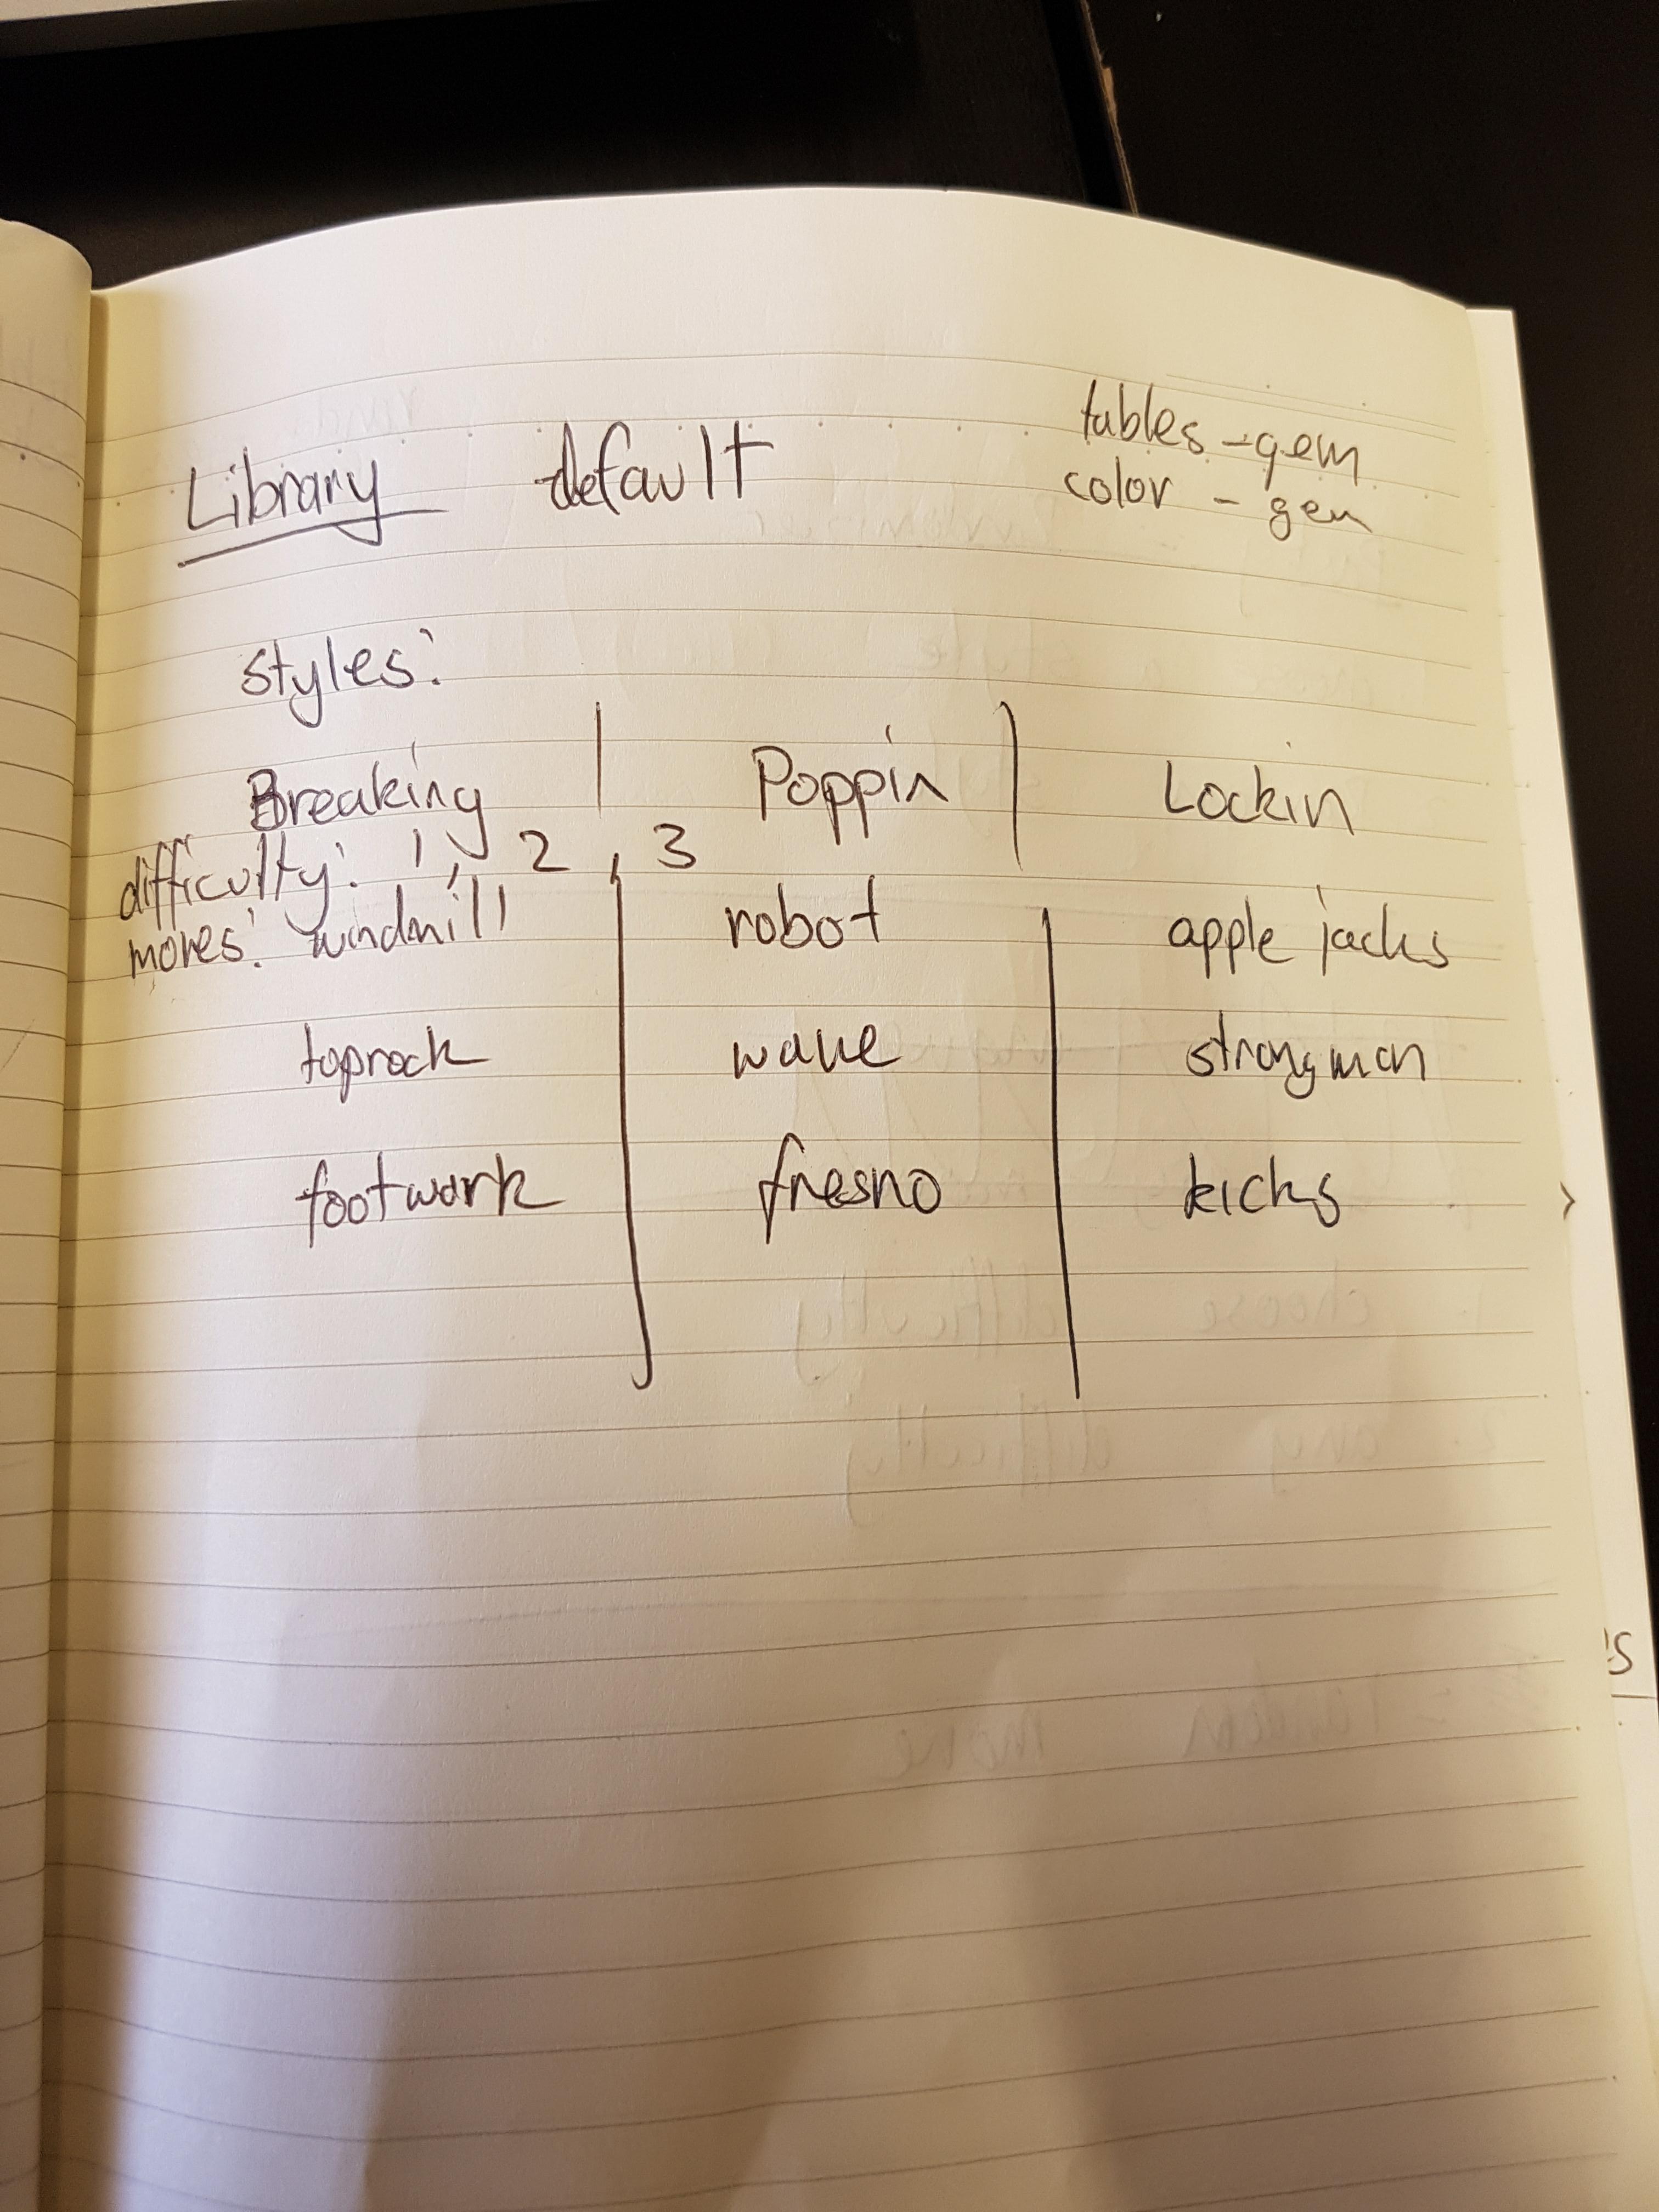 tables - gem
Library default
color - gem
styles:
Breaking | Poppin | Lockin
difficulty: 1, 2, 3
moves: windmill | robot | apple jacks
toprock | wave | strongman
footwork | fresno | kicks